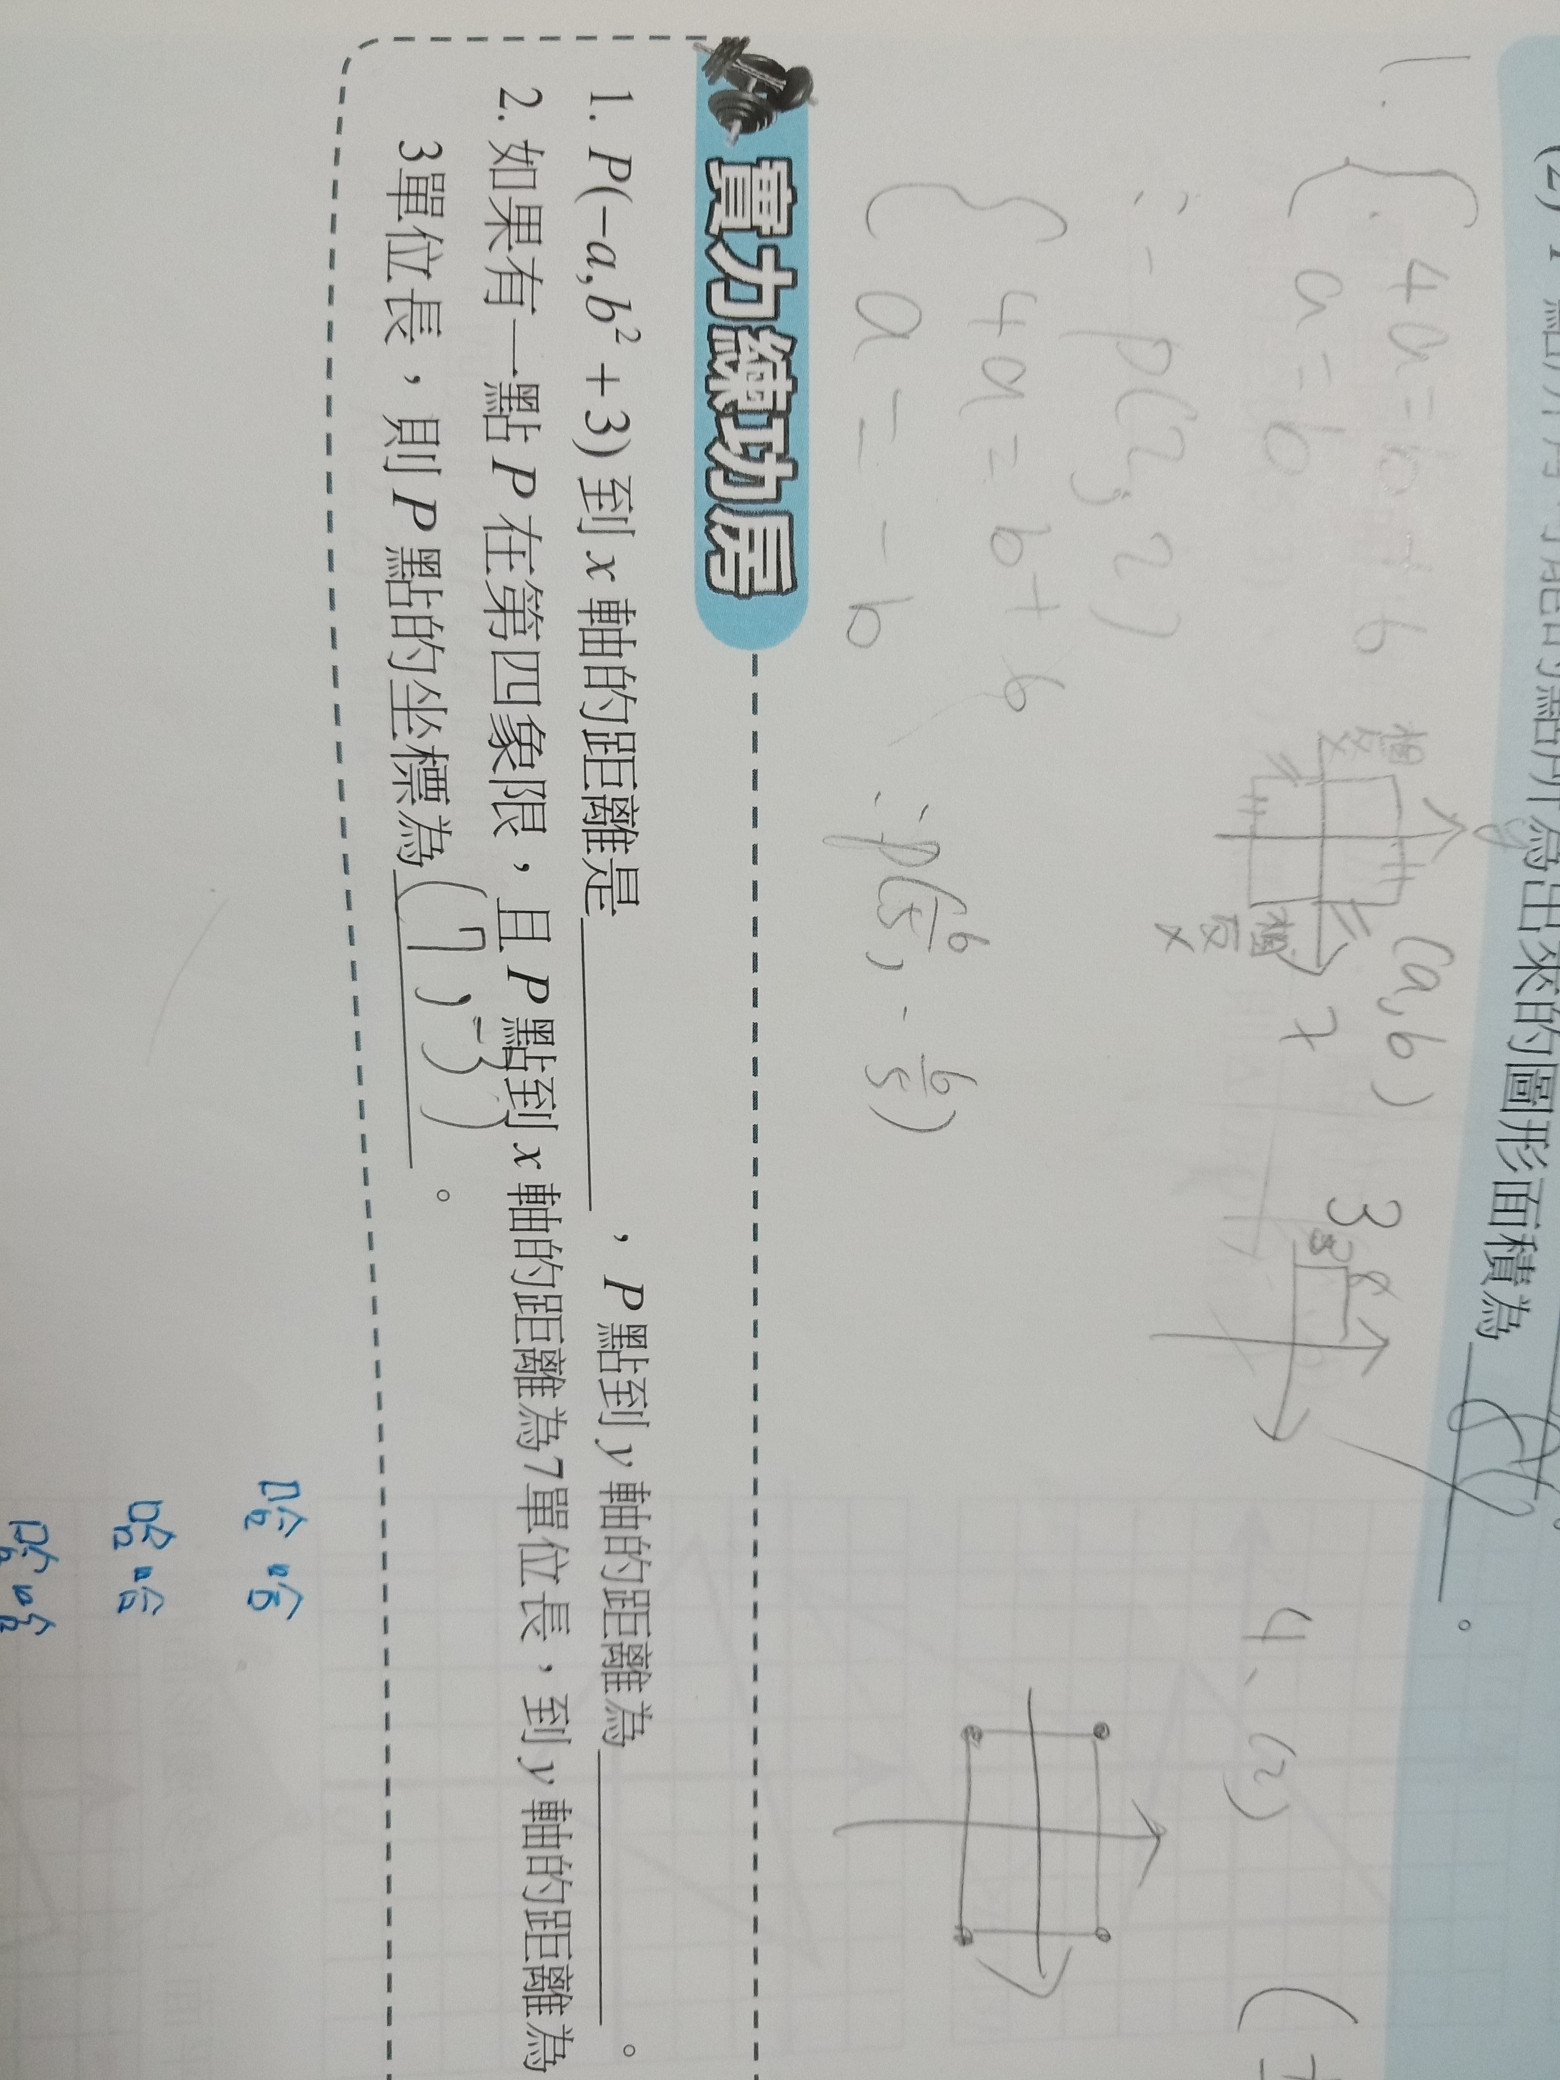 (2) P
所為出來的圖形面積為 。
1. 4a=b+6
a=b
∴-P(2,2)
4a=b+6
a=-b
∴P(6/5,-6/5)
相反
y
(a,b)
x
相反
x
3.
4、(2)
實力練功房
1. P(−a,b²+3)到x軸的距離是 ，P點到y軸的距離為 。
2. 如果有一點P在第四象限，且P點到x軸的距離為7單位長，到y軸的距離為
3單位長，則P點的坐標為(7,-3)。